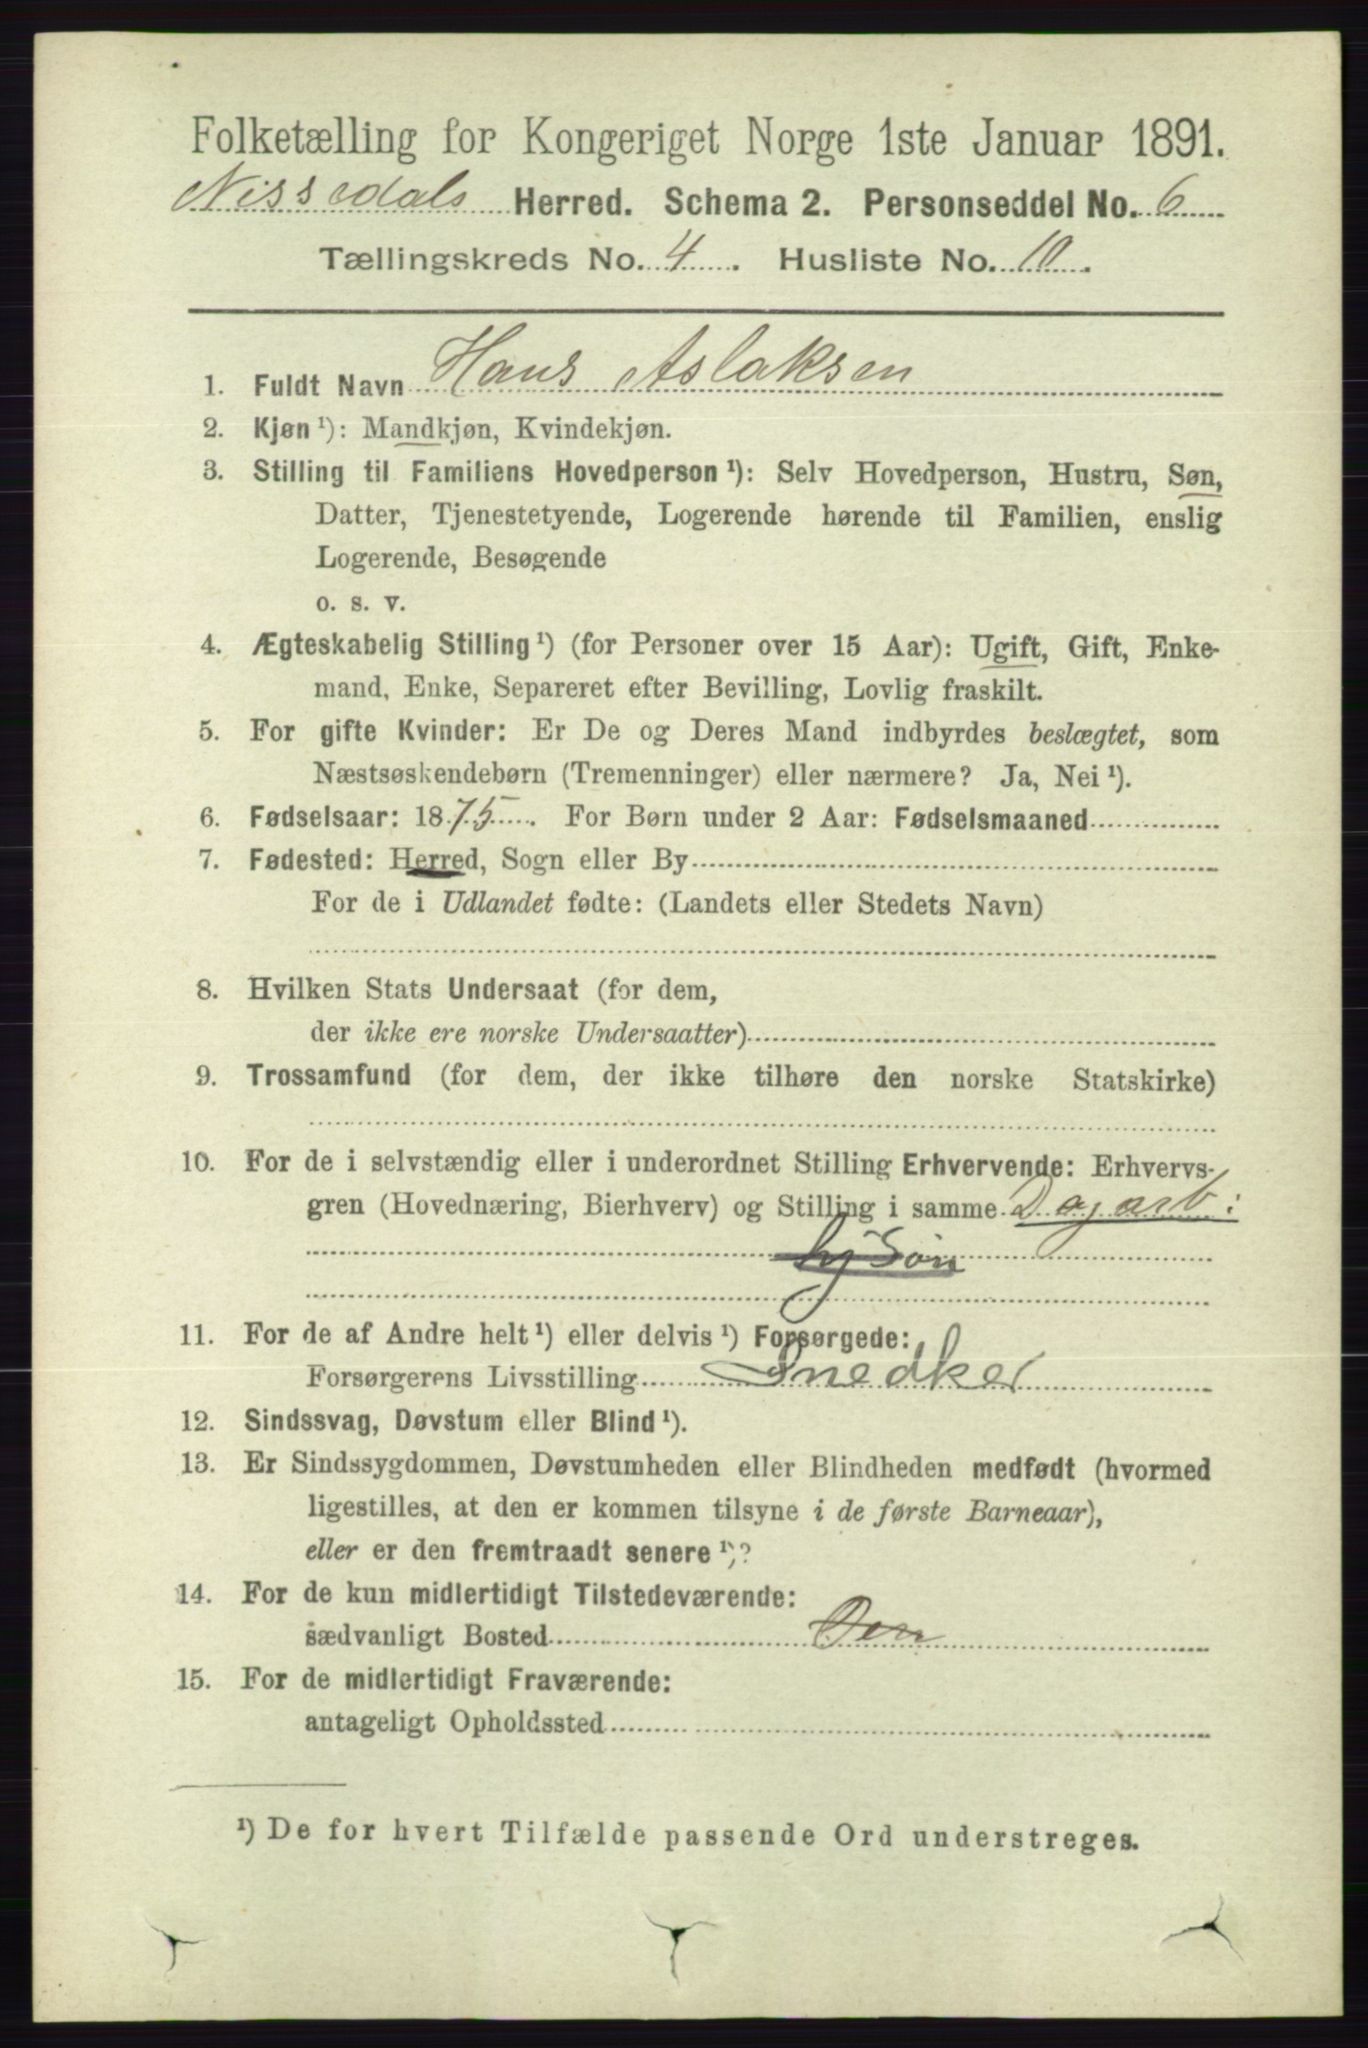 Folketælling for Kongeriget Norge 1ste Januar 1891.
Nissedals Herred. Schema 2. Personseddel No. 6
Tællingskreds No. 4. Husliste No. 10.
1. Fuldt Navn Hans Aslaksen
2. Kjøn ¹): Mandkjøn, Kvindekjøn.
3. Stilling til Familiens Hovedperson ¹): Selv Hovedperson, Hustru, Søn,
Datter, Tjenestetyende, Logerende hørende til Familien, enslig
Logerende, Besøgende
o. s. v.
4. Ægteskabelig Stilling ¹) (for Personer over 15 Aar): Ugift, Gift, Enke-
mand, Enke, Separeret efter Bevilling, Lovlig fraskilt.
5. For gifte Kvinder: Er De og Deres Mand indbyrdes beslægtet, som
Næstsøskendebørn (Tremenninger) eller nærmere? Ja, Nei ¹).
6. Fødselsaar: 1875. For Børn under 2 Aar: Fødselsmaaned
7. Fødested: Herred, Sogn eller By
For de i Udlandet fødte: (Landets eller Stedets Navn)
8. Hvilken Stats Undersaat (for dem,
der ikke ere norske Undersaatter)
9. Trossamfund (for dem, der ikke tilhøre den norske Statskirke)
10. For de i selvstændig eller i underordnet Stilling Erhvervende: Erhvervs-
gren (Hovednæring, Bierhverv) og Stilling i samme Dagarb:
hj Søn
11. For de af Andre helt ¹) eller delvis ¹) Forsørgede:
Forsørgerens Livsstilling Snedker
12. Sindssvag, Døvstum eller Blind ¹).
13. Er Sindssygdommen, Døvstumheden eller Blindheden medfødt (hvormed
ligestilles, at den er kommen tilsyne i de første Barneaar),
eller er den fremtraadt senere ¹)?
14. For de kun midlertidigt Tilstedeværende:
sædvanligt Bosted
15. For de midlertidigt Fraværende:
antageligt Opholdssted
¹) De for hvert Tilfælde passende Ord understreges.